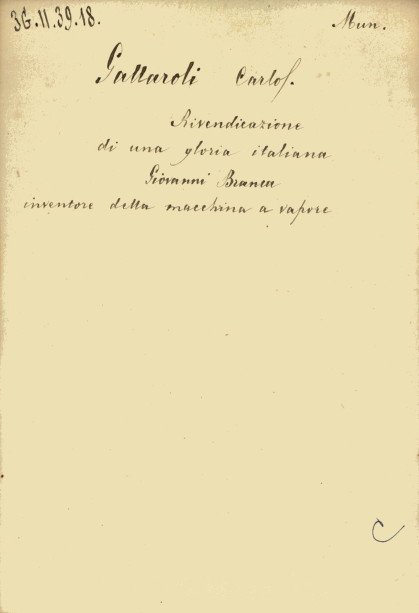 3G.11.39.18.
Mun.
Gattaroli Carlo.
Rivendicazione
di una gloria italiana
Giovanni Branca
inventore della macchina a vapore
C